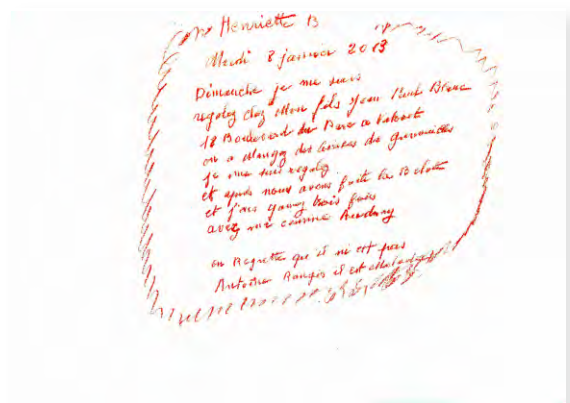 Henriette B
Mardi 8 janvier 2013
Dimanche je me suis
regalez chez Mon fils Jean Paul Blanc
18 Boulevard du Parc a
on a Mangez des de grenouilles
je me suis regalez
et apres nous avons faite la Belote
et j'ais gagnez trois fois
avez ma cousine
on Regrette qu'il ni est pas
Antoine il est Malade